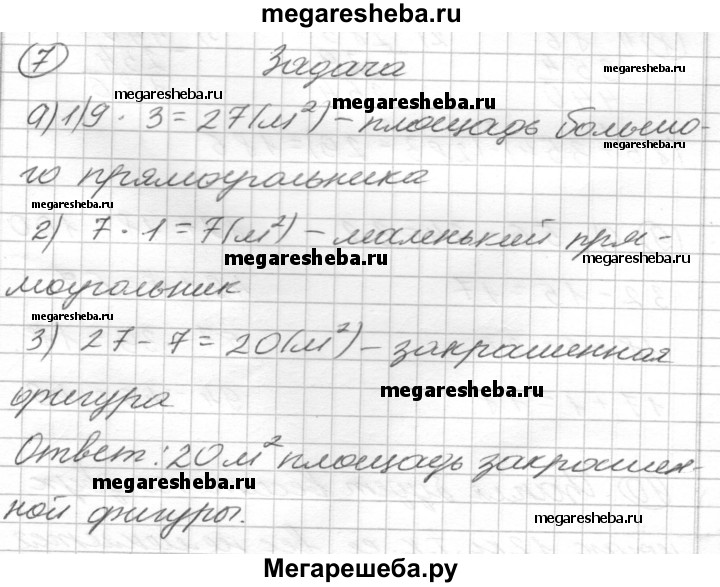 megaresheba.ru
7 Задача
megaresheba.ru megaresheba.ru megaresheba.ru
а) 1) 9 · 3 = 27 (м²) – площадь большо-
го прямоугольника
megaresheba.ru
2) 7 · 1 = 7 (м²) – маленький пря-
megaresheba.ru megaresheba.ru
моугольник
megaresheba.ru
3) 27 – 7 = 20 (м²) – закрашенная
megaresheba.ru
фигура
Ответ: 20 м² площадь закрашен-
megaresheba.ru
ной фигуры.
megaresheba.ru
Мегарешеба.ру